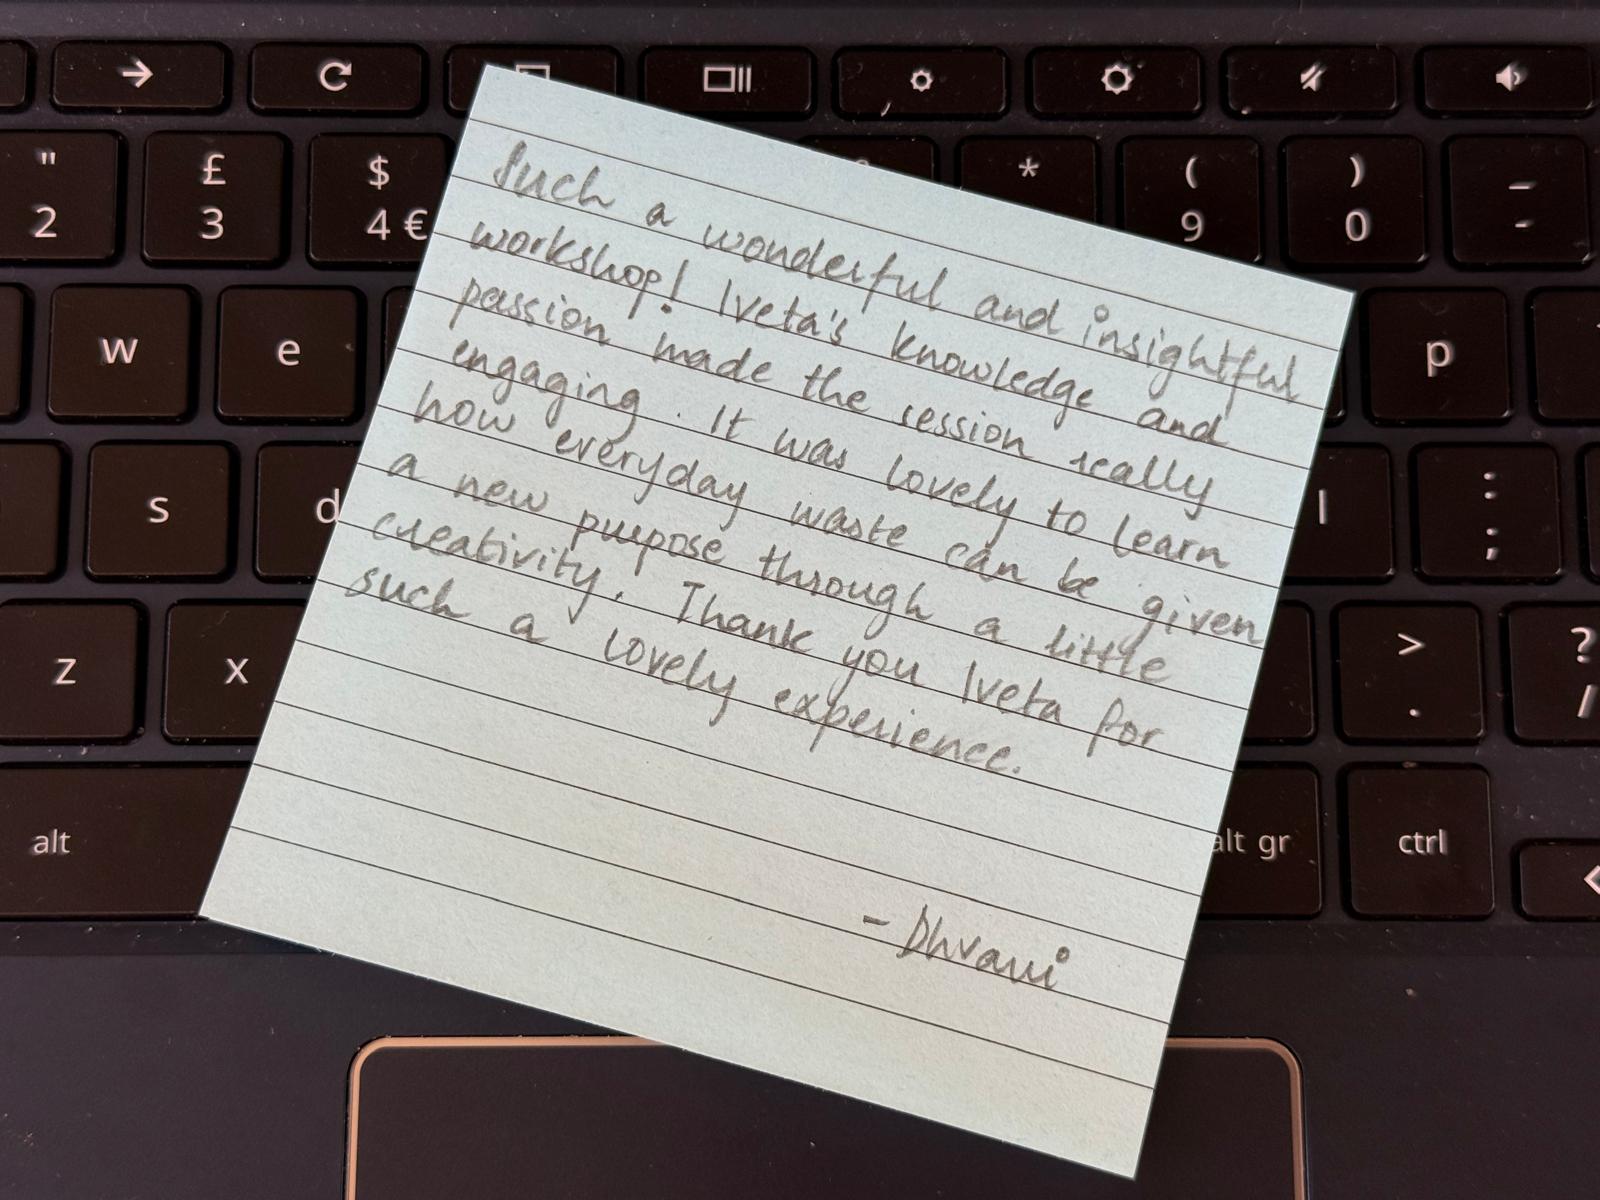 Such a wonderful and insightful
workshop! Iveta's knowledge and
passion made the session really
engaging. It was lovely to learn
how everyday waste can be given
a new purpose through a little
creativity. Thank you Iveta for
such a lovely experience.
- Dhvani
" £ $ * ( ) _
2 3 4 € 9 0 -
w e p
s d l : ;
z x > . ? /
alt alt gr ctrl